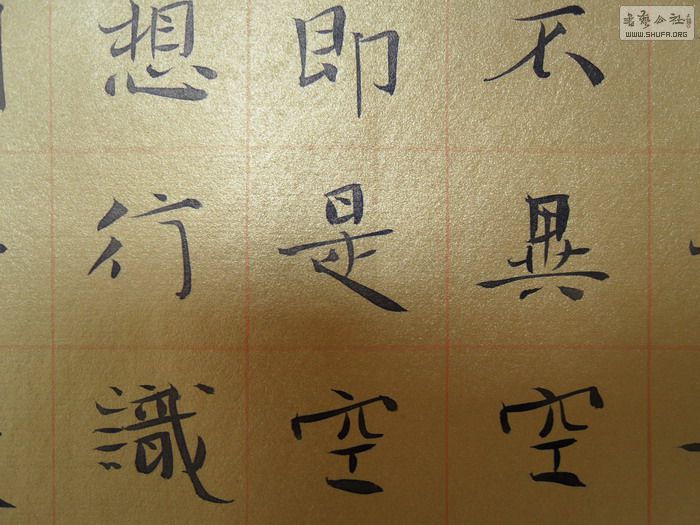 不異空
即是空
想行識
书艺公社
WWW.SHUFA.ORG